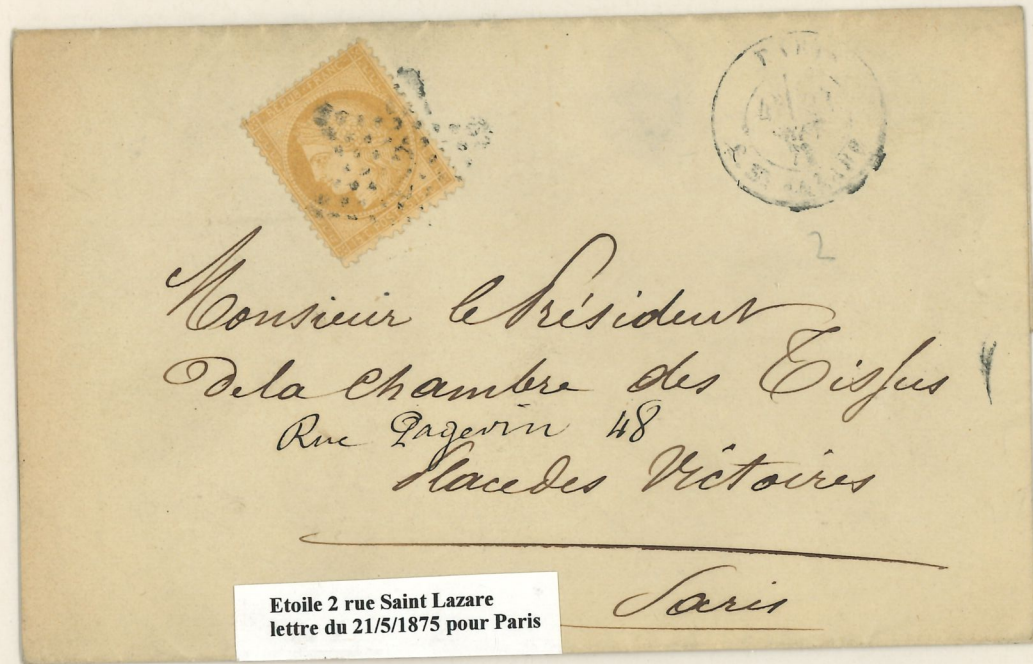 PARIS
R. ST LAZARE
2
Monsieur le Président
De la Chambre des Tissus
Rue Pagevin 48
Place des Victoires
Paris
Etoile 2 rue Saint Lazare
lettre du 21/5/1875 pour Paris